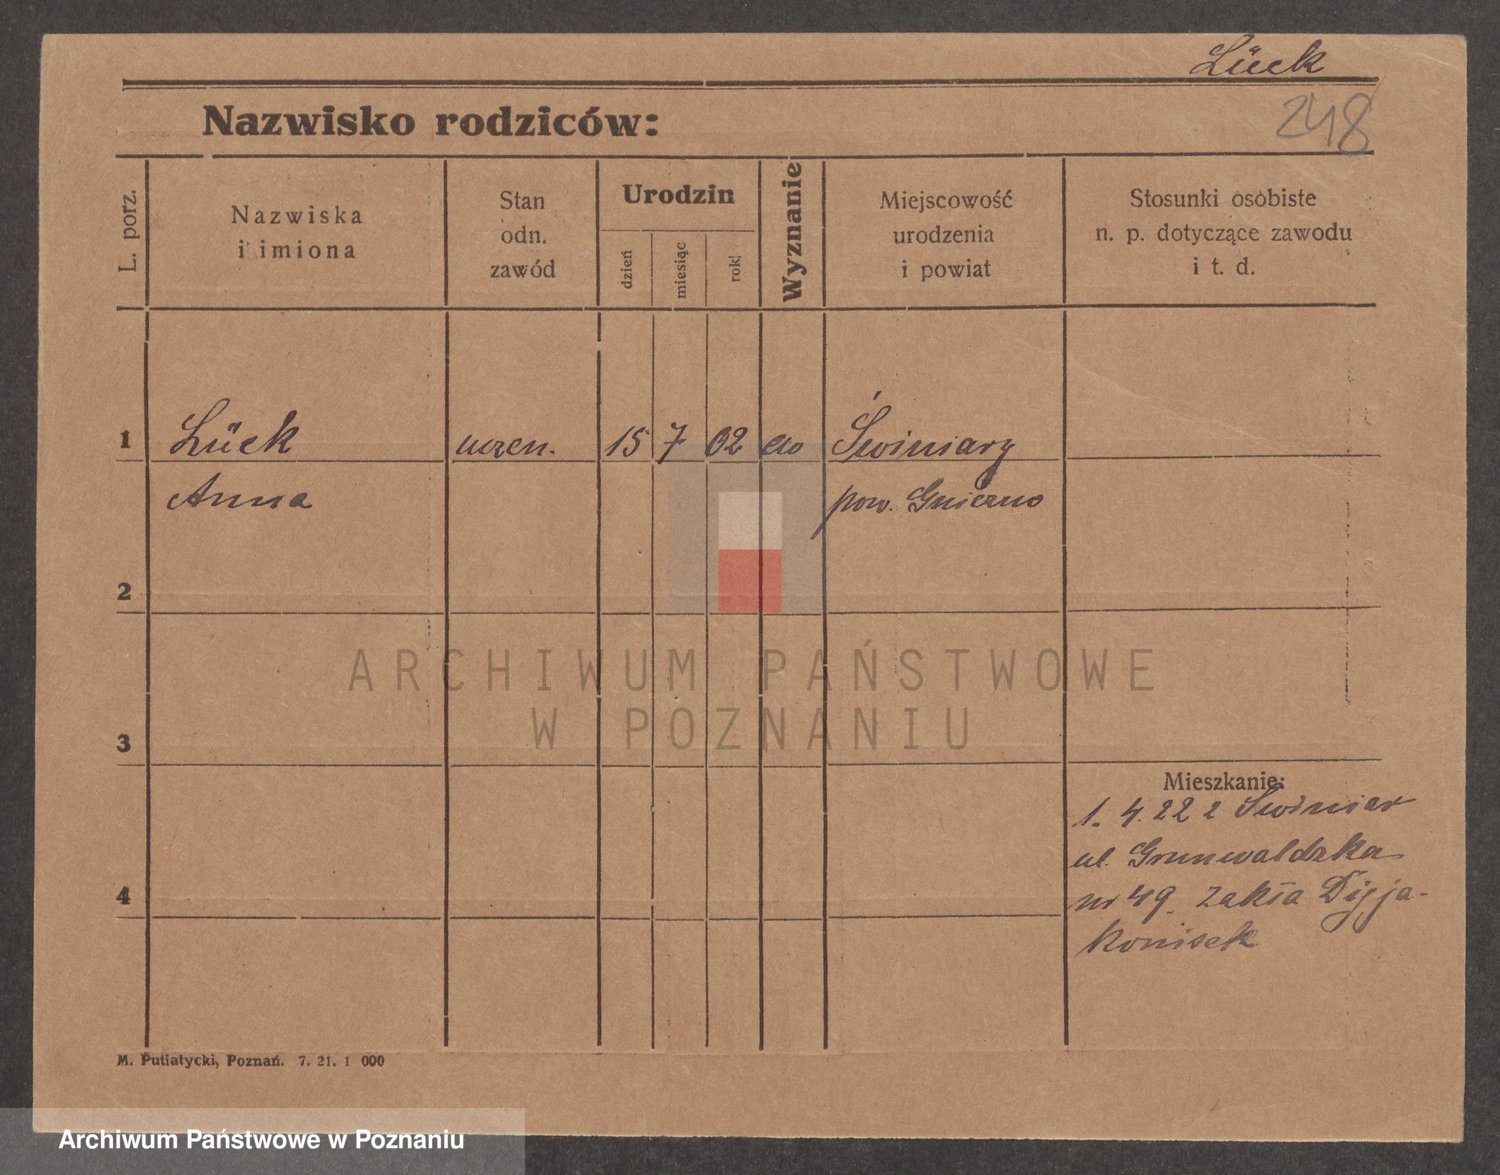 Lück
248
Nazwisko rodziców:
L. porz.
Nazwiska
i imiona
Stan
odn.
zawód
Urodzin
dzień
miesiąc
rok
Wyznanie
Miejscowość
urodzenia
i powiat
Stosunki osobiste
n. p. dotyczące zawodu
i t. d.
1
Lück
uczen.
15 7 02
Świniary
Anna
pow. Gniezno
2
3
4
Mieszkanie:
1. 4. 22 z Swiniar
ul. Grunwaldzka
nr 49. Zakła Dyja-
konisek
M. Putiatycki, Poznań. 7. 21. 1 000
ARCHIWUM PAŃSTWOWE
W POZNANIU
Archiwum Państwowe w Poznaniu